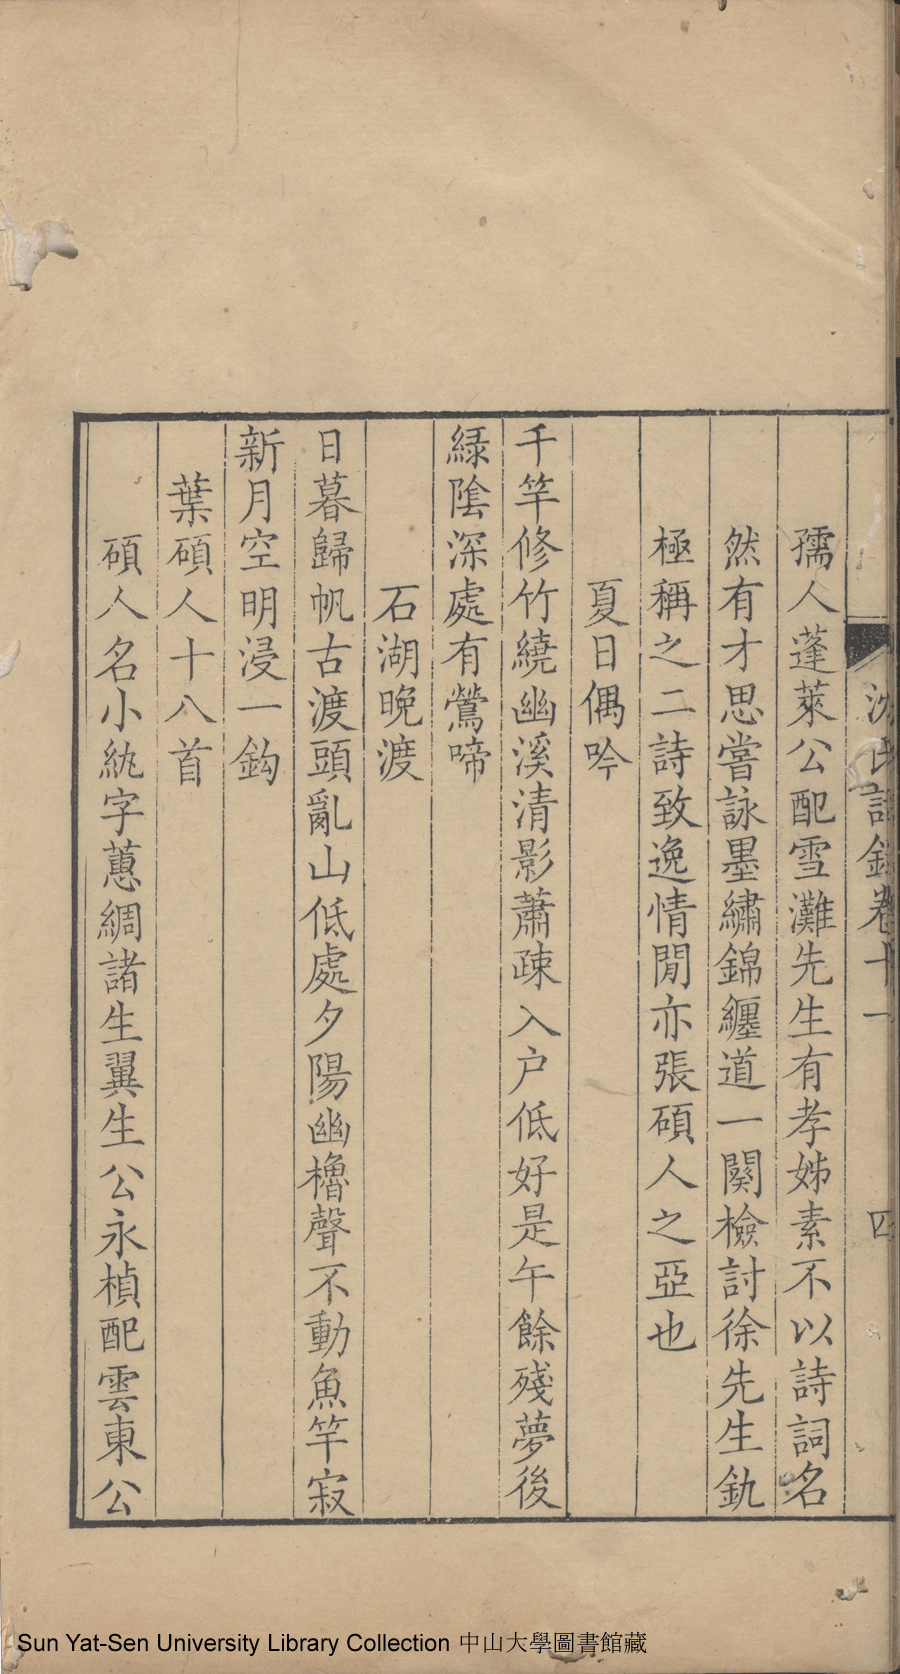 沈氏詩錄卷十一 四
孺人蓬萊公配雪灘先生有孝姊素不以詩詞名
然有才思嘗詠墨繡錦纏道一闋檢討徐先生釚
極稱之二詩致逸情閒亦張碩人之亞也
夏日偶吟
千竿修竹繞幽溪清影蕭疎入户低好是午餘殘夢後
緑陰深處有鶯啼
石湖晩渡
日暮歸帆古渡頭亂山低處夕陽幽櫓聲不動魚竿寂
新月空明浸一鈎
葉碩人十八首
碩人名小紈字蕙綢諸生翼生公永楨配雲東公
Sun Yat-Sen University Library Collection 中山大學圖書館藏